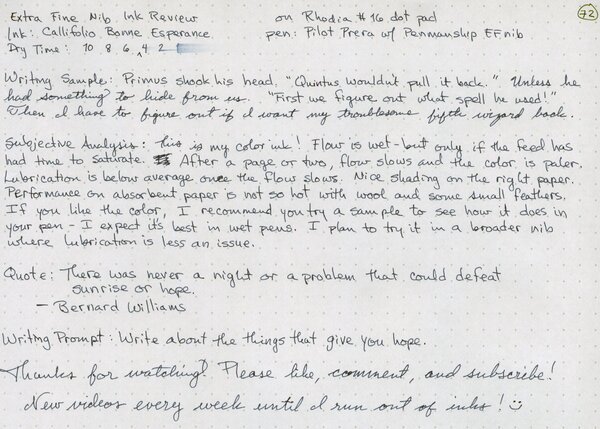 Extra Fine Nib Ink Review on Rhodia #16 dot pad 72
Ink: Callifolio Bonne Esperance pen: Pilot Prera w/ Penmanship EF nib
Dry Time: 10 8 6 4 2
Writing Sample: Primus shook his head. "Quintus wouldn't pull it back." Unless he
had something to hide from us. "First we figure out what spell he used!"
Then I have to figure out if I want my troublesome fifth wizard back.
Subjective Analysis: this is my color ink! Flow is wet-but only if the feed has
had time to saturate. After a page or two, flow slows and the color is paler.
Lubrication is below average once the flow slows. Nice shading on the right paper.
Performance on absorbent paper is not so hot with wool and some small feathers.
If you like the color, I recommend you try a sample to see how it does in
your pen - I expect it's best in wet pens. I plan to try it in a broader nib
where lubrication is less an issue.
Quote: There was never a night or a problem that could defeat
sunrise or hope.
- Bernard Williams
Writing Prompt: Write about the things that give you hope.
Thanks for watching! Please like, comment, and subscribe!
New videos every week until I run out of inks!